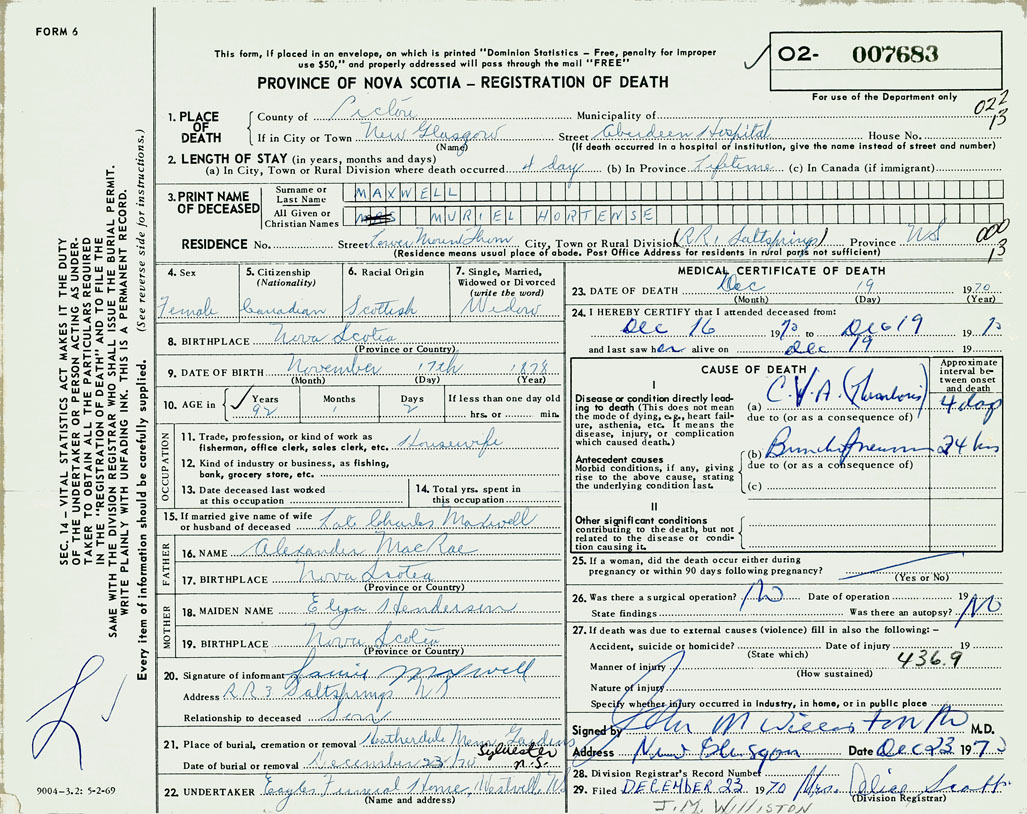 FORM 6
This form, if placed in an envelope, on which is printed "Dominion Statistics – Free, penalty for improper
use $50," and properly addressed will pass through the mail "FREE"
PROVINCE OF NOVA SCOTIA – REGISTRATION OF DEATH
02- 007683
For use of the Department only
022
13
1. PLACE OF DEATH
County of Pictou Municipality of
If in City or Town New Glasgow Street Aberdeen Hospital House No.
(Name) (If death occurred in a hospital or institution, give the name instead of street and number)
2. LENGTH OF STAY (in years, months and days)
(a) In City, Town or Rural Division where death occurred 4 day (b) In Province Lifetime (c) In Canada (if immigrant)
3. PRINT NAME OF DECEASED
Surname or Last Name MAXWELL
All Given or Christian Names MURIEL HORTENSE
RESIDENCE No. Street Lower Mount Thom City, Town or Rural Division (RR1 Saltsprings) Province NS
000
13
(Residence means usual place of abode. Post Office Address for residents in rural parts not sufficient)
4. Sex
Female
5. Citizenship
(Nationality)
Canadian
6. Racial Origin
Scottish
7. Single, Married,
Widowed or Divorced
(write the word)
Widow
8. BIRTHPLACE Nova Scotia
(Province or Country)
9. DATE OF BIRTH November 17th 1878
(Month) (Day) (Year)
10. AGE in Years Months Days If less than one day old
92 1 2 hrs. or min.
OCCUPATION
11. Trade, profession, or kind of work as
fisherman, office clerk, sales clerk, etc. Housewife
12. Kind of industry or business, as fishing,
bank, grocery store, etc.
13. Date deceased last worked
at this occupation
14. Total yrs. spent in
this occupation
15. If married give name of wife
or husband of deceased Late Charles Maxwell
FATHER
16. NAME Alexander MacRae
17. BIRTHPLACE Nova Scotia
(Province or Country)
MOTHER
18. MAIDEN NAME Eliza Henderson
19. BIRTHPLACE Nova Scotia
(Province or Country)
20. Signature of informant Maxwell
Address RR3 Saltsprings NS
Relationship to deceased Son
21. Place of burial, cremation or removal Heatherdale Mem. Gardens
Sylvester
N.S.
Date of burial or removal December 23/70
22. UNDERTAKER Eagles Funeral Home, Westville, NS
(Name and address)
MEDICAL CERTIFICATE OF DEATH
23. DATE OF DEATH Dec 19 1970
(Month) (Day) (Year)
24. I HEREBY CERTIFY that I attended deceased from:
Dec 16 1970 to Dec 19 1970
and last saw her alive on Dec 19 19
CAUSE OF DEATH
Approximate
interval be-
tween onset
and death
I
Disease or condition directly lead-
ing to death (This does not mean
the mode of dying, e.g., heart fail-
ure, asthenia, etc. It means the
disease, injury, or complication
which caused death.)
(a) C.V.A. (Thrombosis) 4 days
due to (or as a consequence of)
Antecedent causes
Morbid conditions, if any, giving
rise to the above cause, stating
the underlying condition last.
(b) Bronchopneumonia 24 hrs
due to (or as a consequence of)
(c)
II
Other significant conditions
contributing to the death, but not
related to the disease or condi-
tion causing it.
25. If a woman, did the death occur either during
pregnancy or within 90 days following pregnancy?
(Yes or No)
26. Was there a surgical operation? No Date of operation 19
State findings Was there an autopsy? No
27. If death was due to external causes (violence) fill in also the following: –
Accident, suicide or homicide? Date of injury 19
(State which)
436.9
Manner of injury
(How sustained)
Nature of injury
Specify whether injury occurred in industry, in home, or in public place
Signed by John M Williston MD M.D.
Address New Glasgow Date Dec 23 1970
28. Division Registrar's Record Number
29. Filed DECEMBER 23 1970 Mrs. Alice Scott
(Division Registrar)
J.M. WILLISTON
SEC. 14 – VITAL STATISTICS ACT MAKES IT THE DUTY
OF THE UNDERTAKER OR PERSON ACTING AS UNDER-
TAKER TO OBTAIN ALL THE PARTICULARS REQUIRED
IN THE "REGISTRATION OF DEATH" AND TO FILE THE
SAME WITH THE DIVISION REGISTRAR WHO SHALL ISSUE THE BURIAL PERMIT.
WRITE PLAINLY WITH UNFADING INK. THIS IS A PERMANENT RECORD.
Every item of information should be carefully supplied. (See reverse side for instructions.)
9004-3.2: 5-2-69